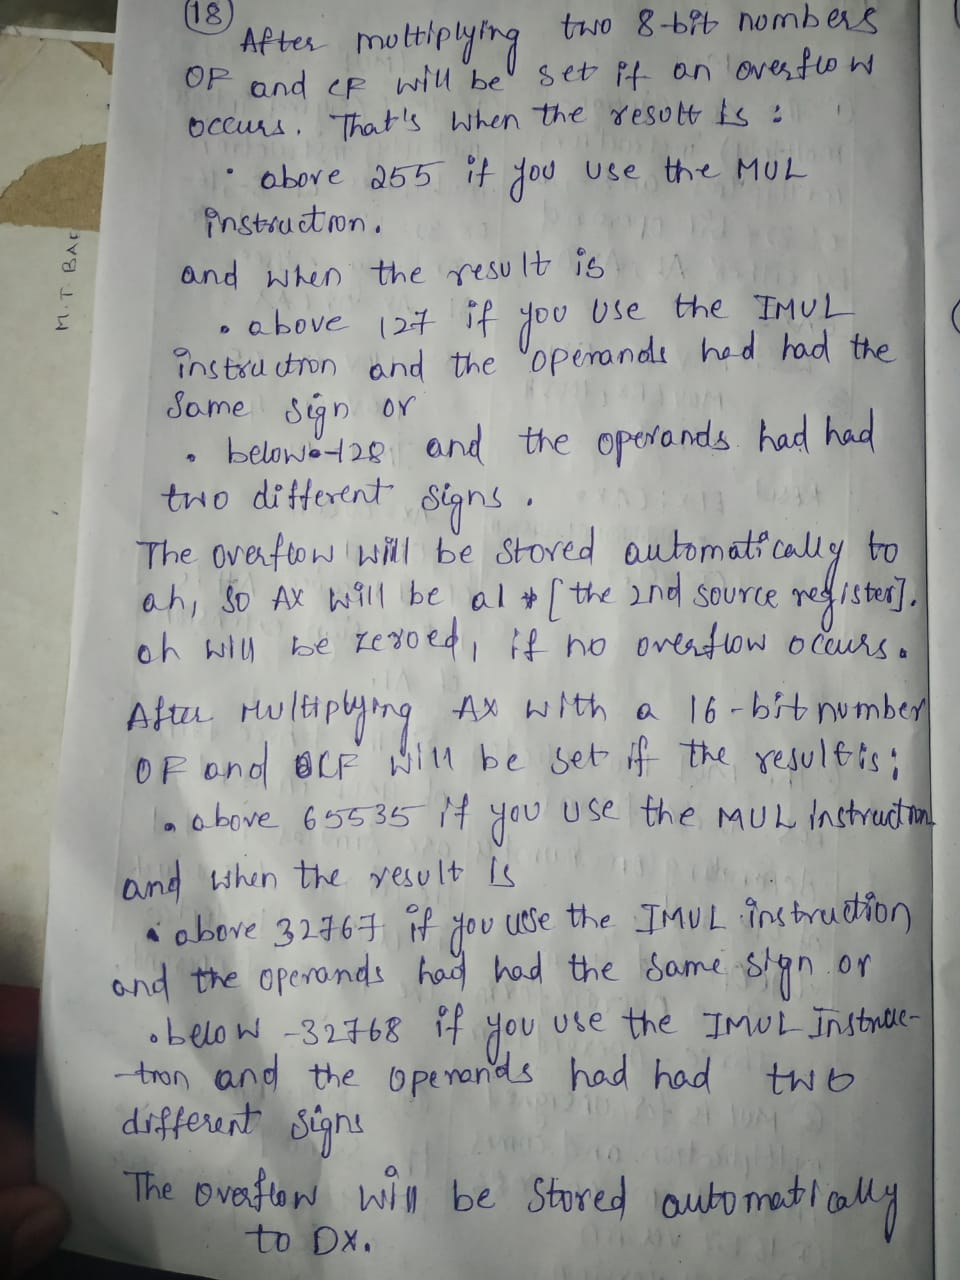 18
After multiplying two 8-bit numbers
OF and CF will be set if an overflow
occurs. That's when the result is :
• above 255 if you use the MUL
instruction.
and when the result is
• above 127 if you use the IMUL
instruction and the operands had had the
same sign or
• below -128 and the operands had had
two different signs.
The overflow will be stored automatically to
ah, so AX will be al * [the 2nd source register].
ah will be zeroed, if no overflow occurs.
After Multiplying AX with a 16-bit number
OF and CF will be set if the result is;
• above 65535 if you use the MUL instruction
and when the result is
• above 32767 if you use the IMUL instruction
and the operands had had the same sign or
• below -32768 if you use the IMUL Instruc-
-tion and the operands had had two
different signs
The overflow will be stored automatically
to DX.
M.T. BAE